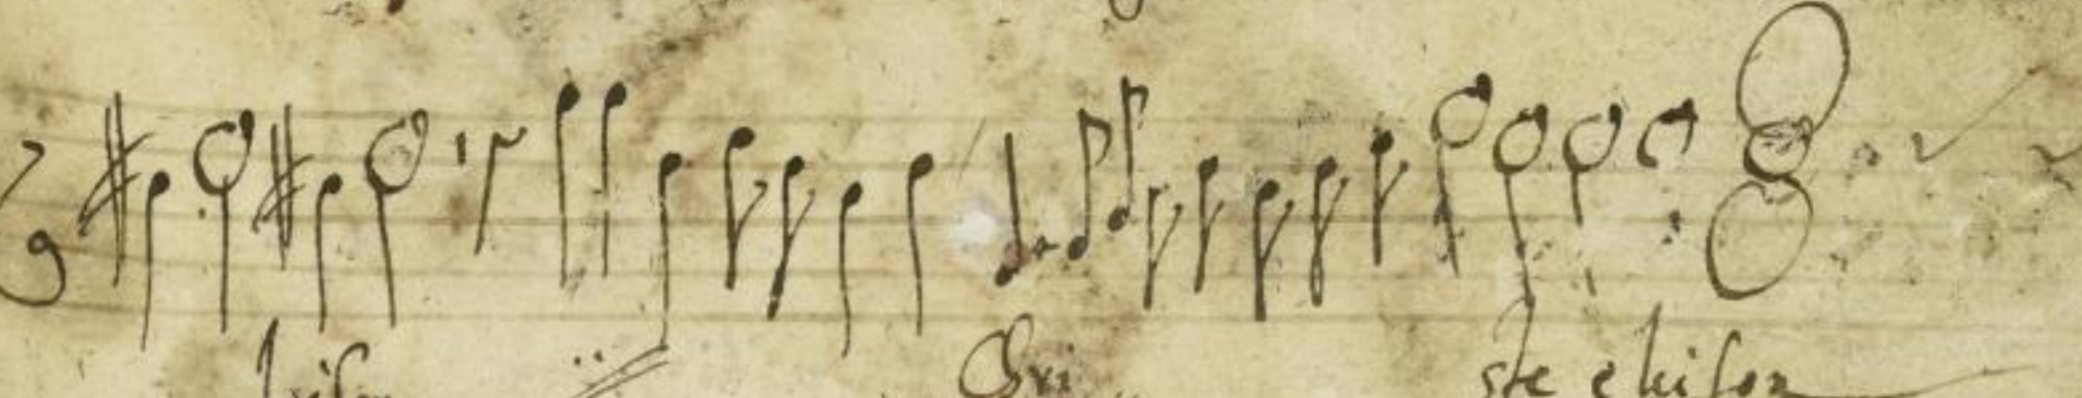 leison Chri ste eleison